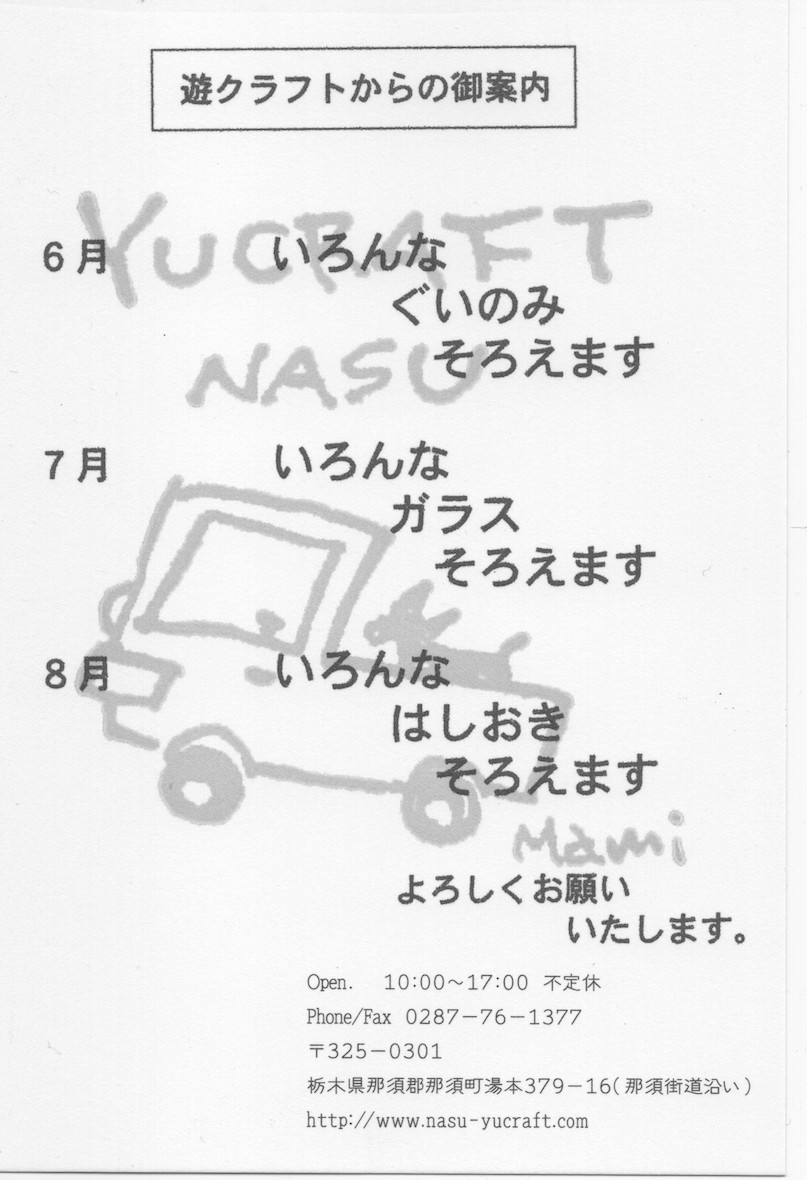 遊クラフトからの御案内
YUCRAFT
NASU
6月 いろんな
ぐいのみ
そろえます
7月 いろんな
ガラス
そろえます
8月 いろんな
はしおき
そろえます
Mami
よろしくお願い
いたします。
Open. 10:00～17:00 不定休
Phone/Fax 0287－76－1377
〒325－0301
栃木県那須郡那須町湯本379－16(那須街道沿い)
http://www.nasu-yucraft.com